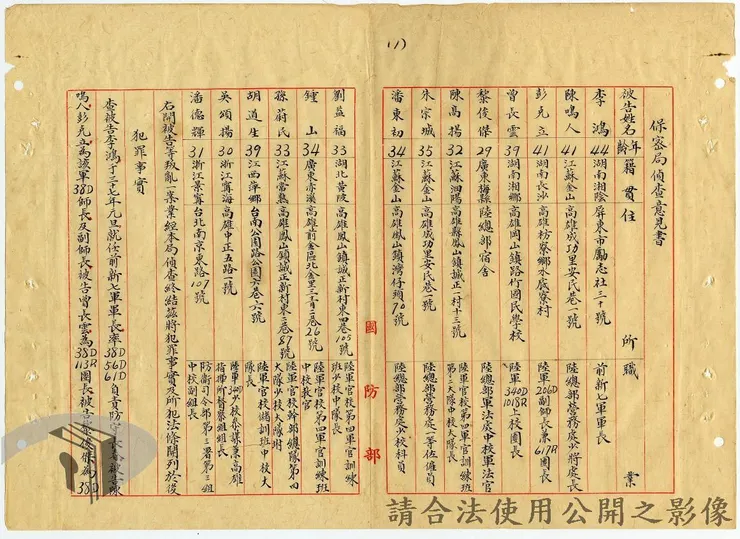 (1)
保密局偵查意見書
被告姓名 年齡 籍貫 住所 職業
李鴻 44 湖南湘陰 屏東市勵志社三十號 前新七軍軍長
陳鳴人 41 江蘇金山 高雄成功里安民巷一號 陸總部營務處少將處長
彭克立 41 湖南長沙 高雄枋寮鄉水底寮村 陸軍206D副師長兼617R團長
曾長雲 39 湖南湘鄉 高雄岡山鎮路竹國民學校 陸軍340D1018R上校團長
黎俊傑 29 廣東梅縣 陸總部宿舍 陸總部軍法處中校軍法官
陳高揚 32 江蘇泗陽 高雄縣鳳山鎮誠正一村十三號 陸軍官校第四軍官訓練班第三大隊中校大隊長
朱宗城 35 江蘇金山 高雄成功里安民巷一號 陸總部營務處一等佐僱員
潘東初 34 江蘇金山 高雄鳳山鎮灣仔頭70號 陸總部營務處少校科員
劉益福 33 湖北黃陂 高雄鳳山鎮誠正新村東四巷105號 陸軍官校第四軍官訓練班少校中隊長
鍾山 34 廣東赤溪 高雄前金區北金里三十二巷26號 陸軍官校第四軍官訓練班中校教官
孫蔚民 33 江蘇常熟 高雄鳳山鎮誠正新村東二巷87號 陸軍官校幹部總隊第四大隊少校大隊附
胡道生 39 江西萍鄉 台南公園路公園六巷六號 陸軍官校儲訓班中校大隊長
吳頌揚 30 浙江寧海 高雄中正五路一號 陸軍340D少校參謀兼高雄指揮所督察組組長
潘德輝 31 浙江景寧 台北南京東路107號 防衛司令部第三署第三組中校副組長
右開被告等叛亂一案業經本局偵查終結茲將犯罪事實及所犯法條開列於後
犯罪事實
查被告李鴻于三十七年元旦就任前新七軍軍長率38D 56D 61D自負防守長春被告陳
鳴人彭克立為該軍38D師長及副師長被告曾長雲為38D113R團長被告黎俊傑為38D
國防部
請合法使用公開之影像